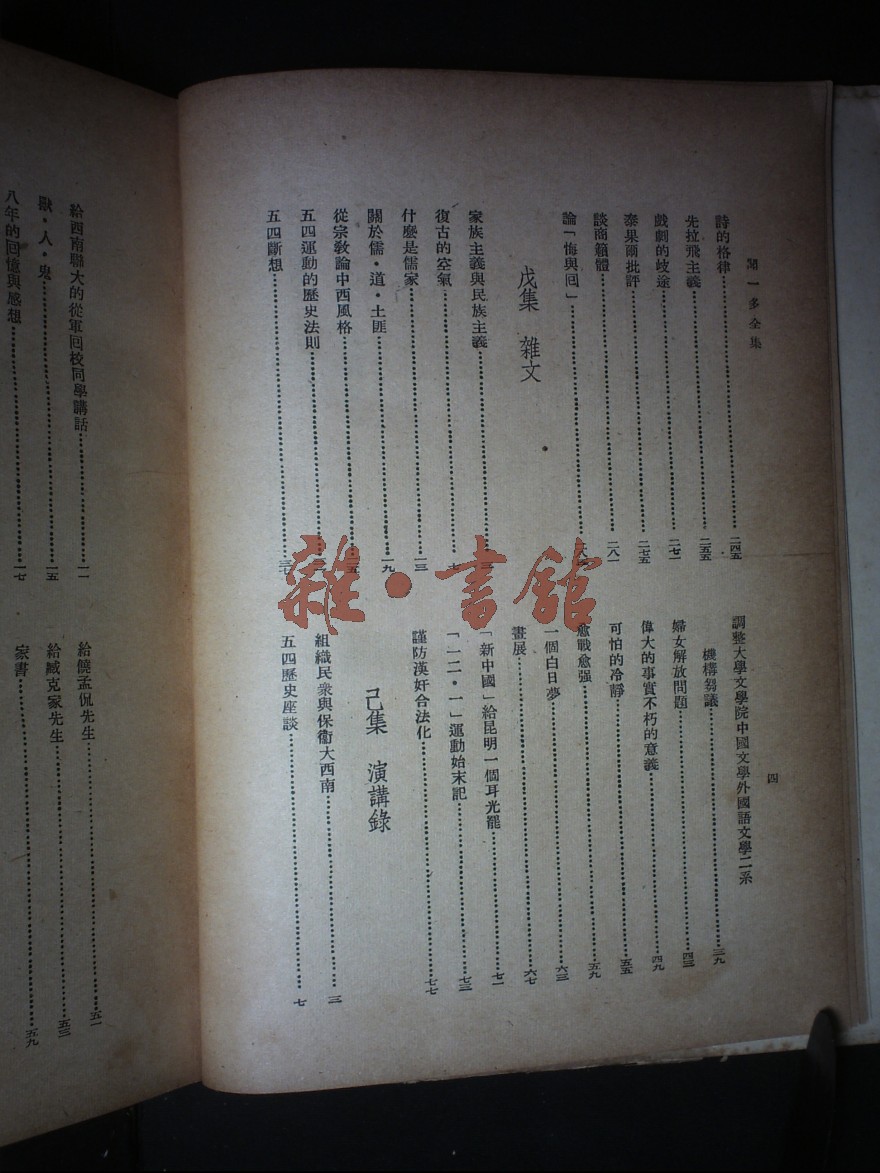 聞一多全集
四
詩的格律……二四五
先拉飛主義……二五五
戲劇的岐途……二七一
泰果爾批評……二七五
談商籟體……二八一
論「悔與囘」……
戊集 雜文
家族主義與民族主義……三
復古的空氣……七
什麼是儒家……一三
關於儒・道・土匪……一九
從宗教論中西風格……
五四運動的歷史法則……
五四斷想……三七
調整大學文學院中國文學外國語文學二系
機構芻議……三九
婦女解放問題……四三
偉大的事實不朽的意義……四九
可怕的冷靜……五五
愈戰愈强……五九
一個白日夢……六三
畫展……六七
「新中國」給昆明一個耳光罷……七一
「一二・一」運動始末記……七三
謹防漢奸合法化……七七
己集 演講錄
組織民衆與保衛大西南……三
五四歷史座談……七
給西南聯大的從軍囘校同學講話……一一
獸・人・鬼……一五
八年的囘憶與感想……一七
給饒孟侃先生……五一
給臧克家先生……五三
家書……五九
雜・書館